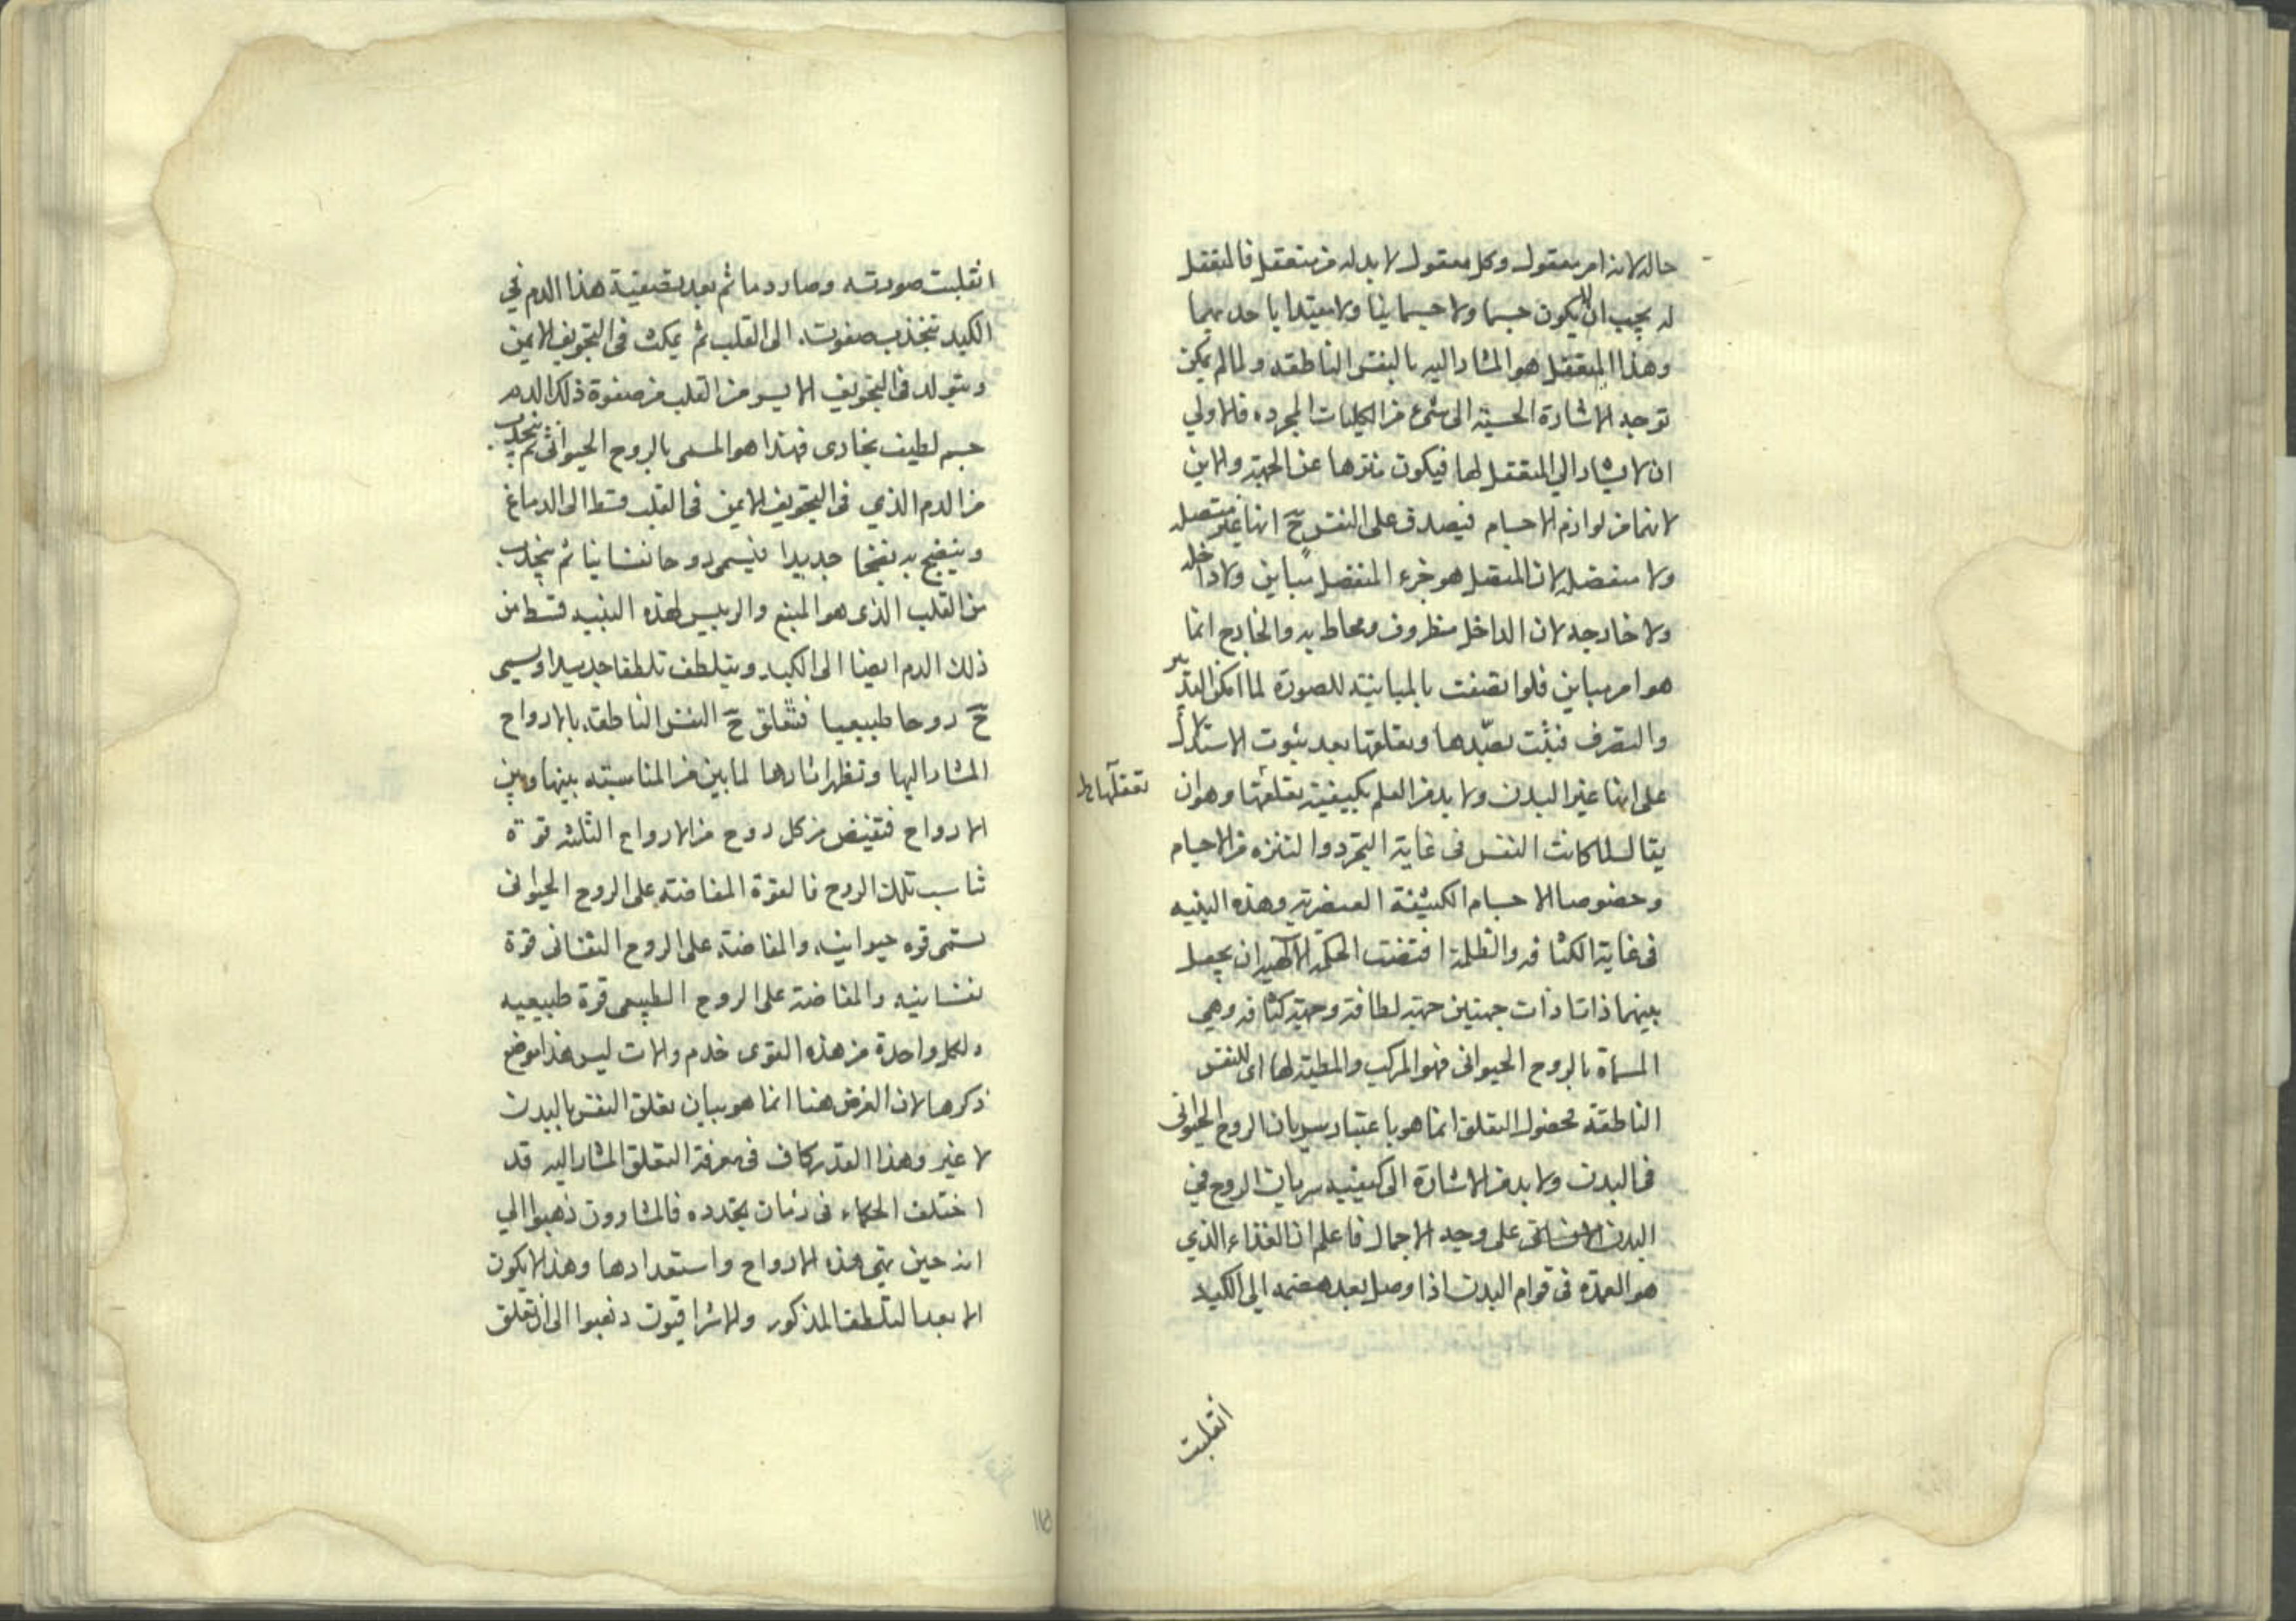 حاله لانه امر معقول وكل معقول لا بد له من متعقل فالمتعقل
له يجب ان لا يكون جسما ولا جسمانيا ولا مقيدا باحديهما
وهذا المتعقل هو المشار اليه بالنفس الناطقه ولما لم يمكن
توجه الاشارة الحسيه الى شئ من الكليات المجرده فالاولي
ان لا يشار الي المتعقل لها فيكون منزها عن الجهة والاين
لانهما من لوازم الاجسام فيصدق على النفس ح انها غير متصله
ولا منفصله لان المتصل هو جزء المنفصل مباين ولا داخله
ولا خارجه لان الداخل مظروف ومحاط به والخارج انما
هو امر مباين فلو اتصفت بالمباينته للصورة لما امكن التدبير
والتصرف فيثبت تعبّدها وتعلقها بعد ثبوت الاستدلال
على انها غير البدن ولا بد من العلم بكيفية تعلقها وهو ان
تعقلها ط
يقال لما كانت النفس فى غاية التجرد والتنزه من الاجسام
وخصوصا الاجسام الكثيفة العنصرية وهذه البنيه
فى غاية الكثافه والظلمة اقتضت الحكمة الالهيه ان يجعل
بينهما ذاتا ذات جهتين جهة لطافة وجهة كثافه وهي
المسماة بالروح الحيوانى فهو المركب والمطية لها اى للنفس
الناطقة فحصول التعلق انما هو باعتبار سريان الروح الحيوانى
فى البدن ولا بد من الاشارة الى كيفيه سريان الروح في
البدن الانسانى على وجه الاجمال فاعلم ان الغذاء الذي
هو العمدة فى قوام البدن اذا وصل بعد هضمه الى الكبد
انقلبت
انقلبت صورته وصار دما ثم بعد تصفية هذا الدم في
الكبد تنجذب صفوته الى القلب ثم يمكث فى التجويف الايمن
ويتولد فى التجويف الايسر من القلب من صفوة ذلك الدم
جسم لطيف بخارى فهذا هو المسمى بالروح الحيوانى ثم ينجذب
من الدم الذي فى التجويف الايمن فى القلب قسط الى الدماغ
وينضج به نضجا جديدا فيسمى روحا نفسانيا ثم ينجذب
من القلب الذى هو المنبع والرييس لهذه البنيه قسط من
ذلك الدم ايضا الى الكبد ويتلطف تلطفا جديدا ويسمى
ح روحا طبيعيا فتعلق ح النفس الناطقة بالارواح
المشار اليها وتظهر اثارها لما بين من المناسبته بينها وبين
الارواح فتفيض من كل روح من الارواح الثلثه قوة
تناسب تلك الروح فالقوة المفاضة على الروح الحيوانى
تسمى قوه حيوانيه والمفاضة على الروح النفسانى قوة
نفسانيه والمفاضة على الروح الطبيعى قوة طبيعيه
ولكل واحدة من هذه القوى خدم والات ليس هذا موضع
ذكرها لان الغرض هنا انما هو بيان تعلق النفس بالبدن
لا غير وهذا القدر كاف فى معرفة التعلق المشار اليه قد
اختلف الحكماء فى زمان تجدده فالمشاؤون ذهبوا الي
انه حين تهيى هذه الارواح واستعدادها وهذا لا يكون
الا بعد التلطف المذكور والاشراقيون ذهبوا الى ان تعلق
١١٥